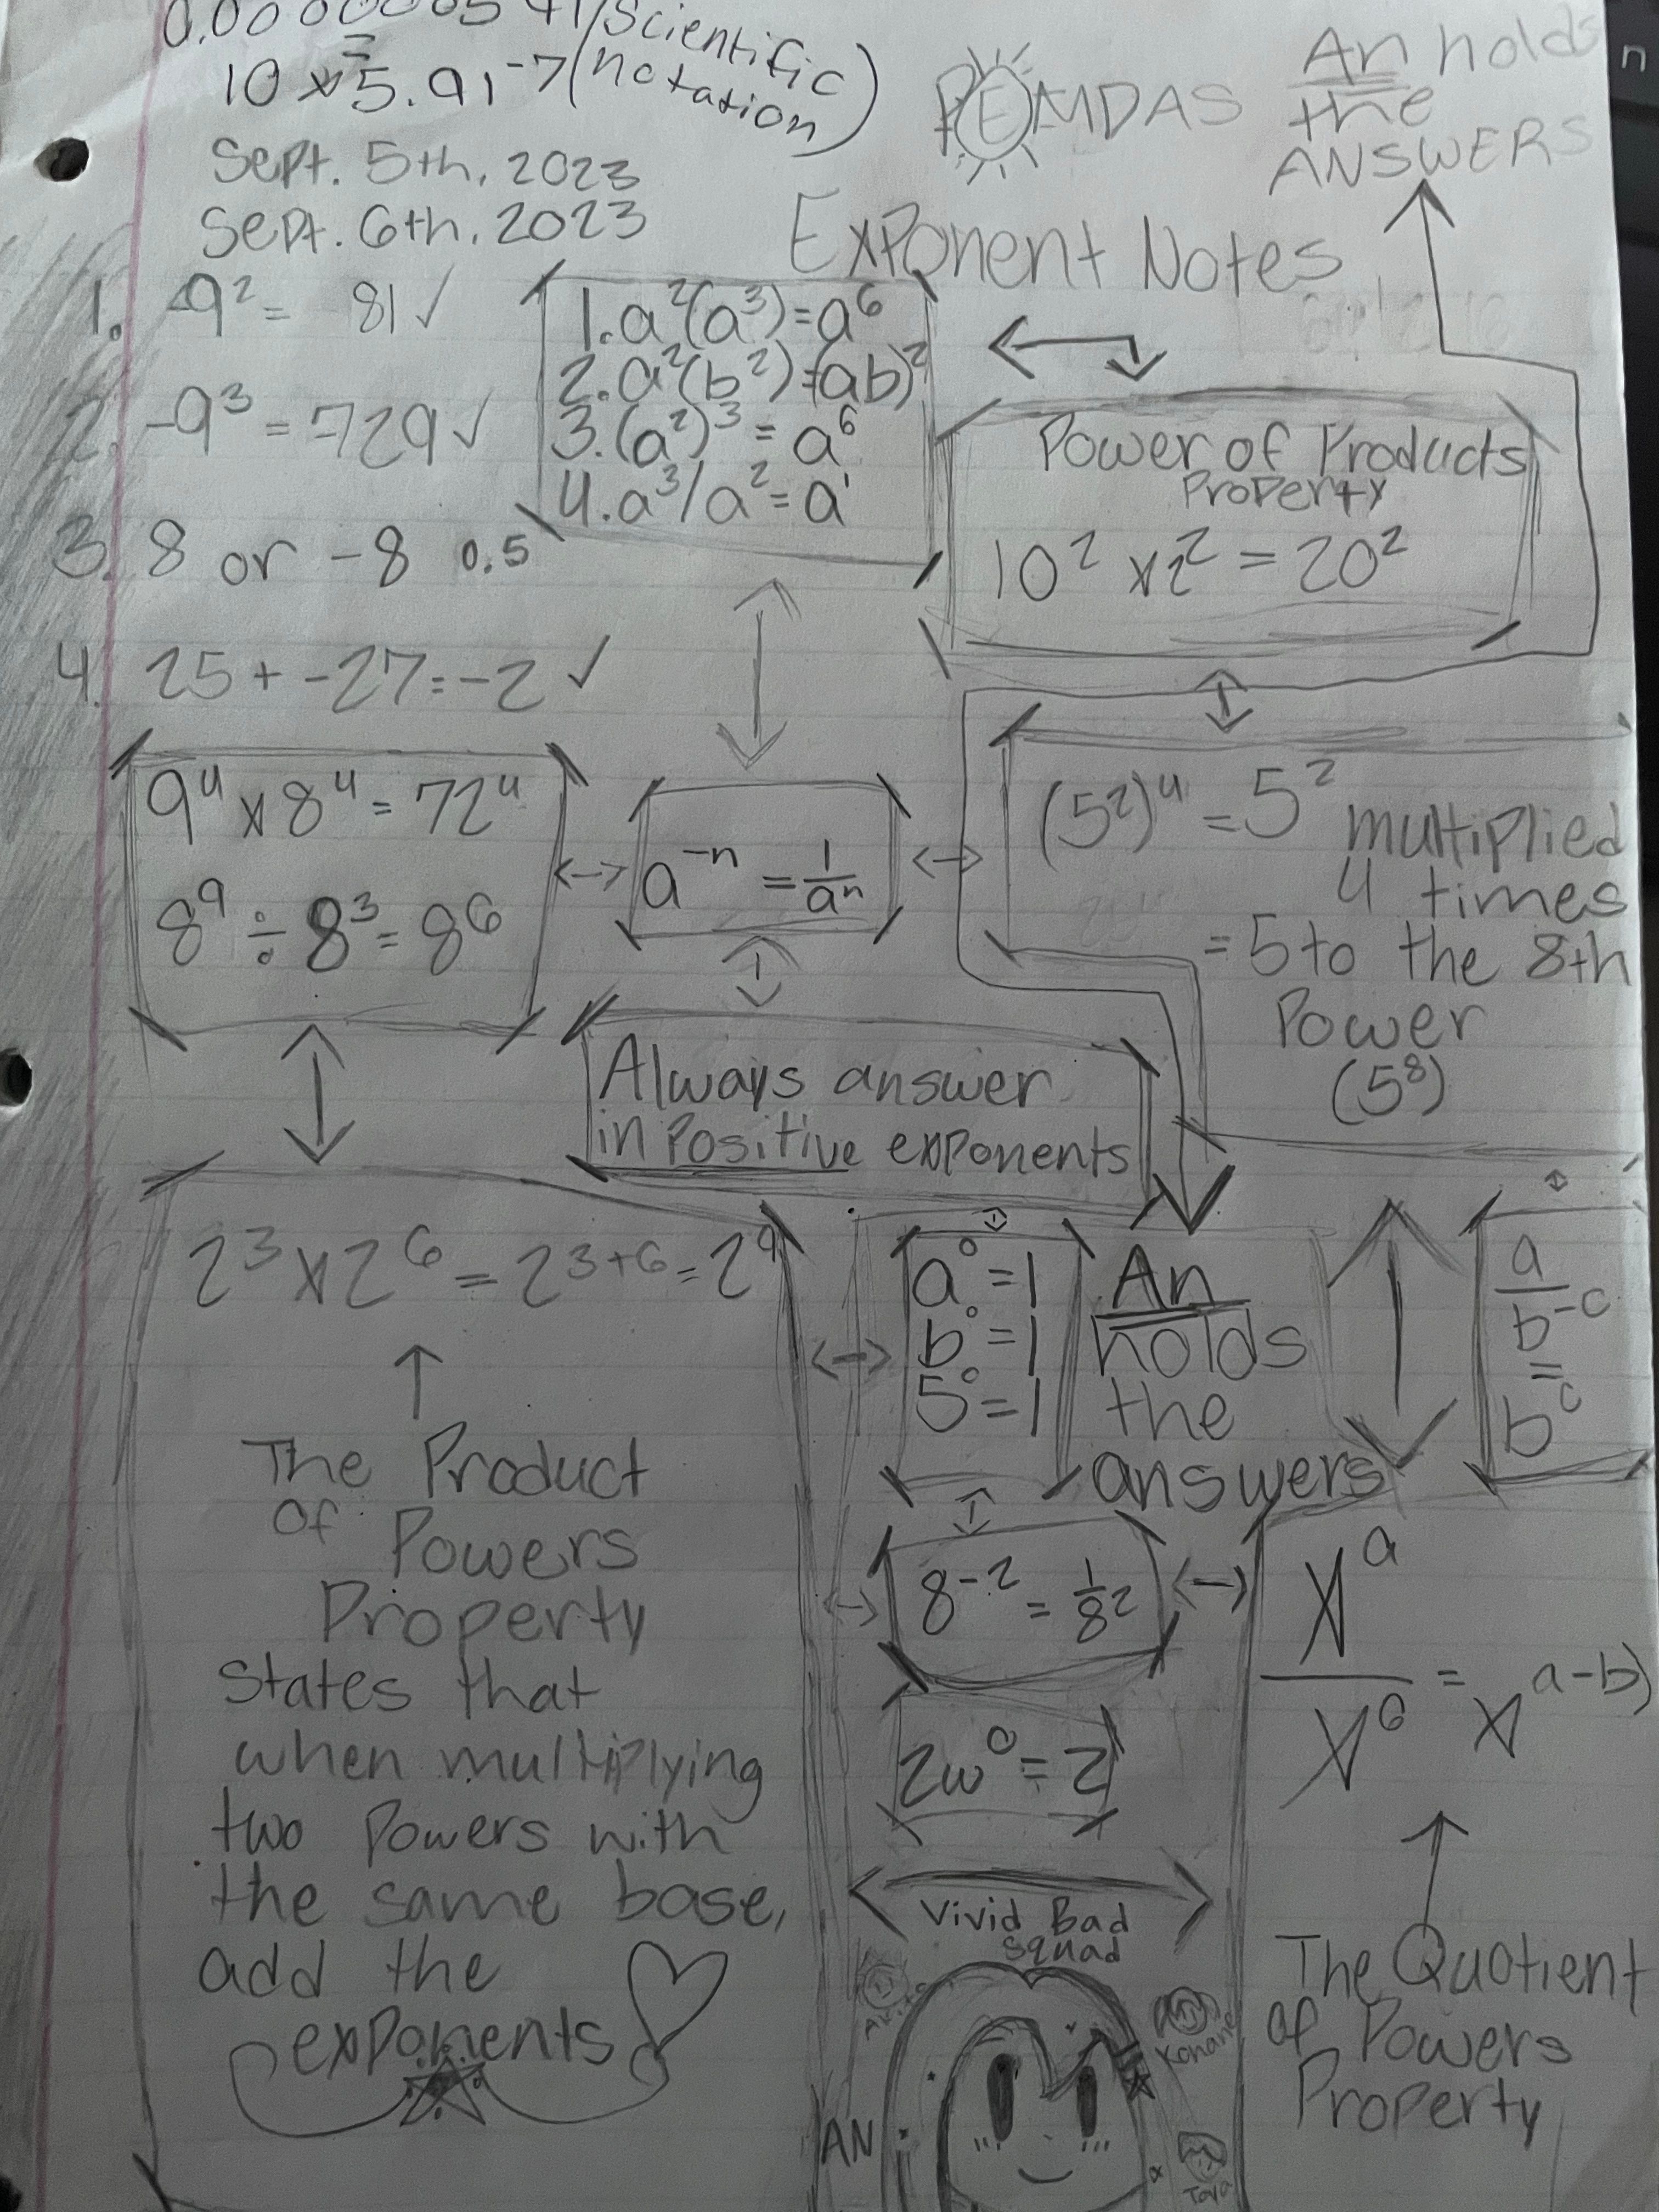 10 x 5.91⁻⁷ (Scientific notation)
PEMDAS
An holds
the
ANSWERS
Sept. 5th, 2023
Sept. 6th, 2023
Exponent Notes
1. -9² = 81 ✓
2. -9³ = -729 ✓
3. 8 or -8 0.5
4. 25 + -27 = -2 ✓
1. a²(a³) = a⁶
2. a²(b²) = (ab)²
3. (a²)³ = a⁶
4. a³/a² = a¹
Power of Products
Property
10² x 2² = 20²
9⁴ x 8⁴ = 72⁴
8⁹ ÷ 8³ = 8⁶
a⁻ⁿ = 1/aⁿ
(5²)⁴ = 5²
multiplied
4 times
= 5 to the 8th
Power
(5⁸)
Always answer
in Positive exponents
2³ x 2⁶ = 2³⁺⁶ = 2⁹
The Product
of Powers
Property
States that
when multiplying
two Powers with
the same base,
add the
exponents
a⁰ = 1
b⁰ = 1
5⁰ = 1
An
holds
the
answers
a
b⁻ᶜ
=
bᶜ
8⁻² = 1/8²
2w⁰ = 2
xᵃ
x⁶
= x ᵃ⁻ᵇ⁾
The Quotient
of Powers
Property
Vivid Bad
Squad
AN